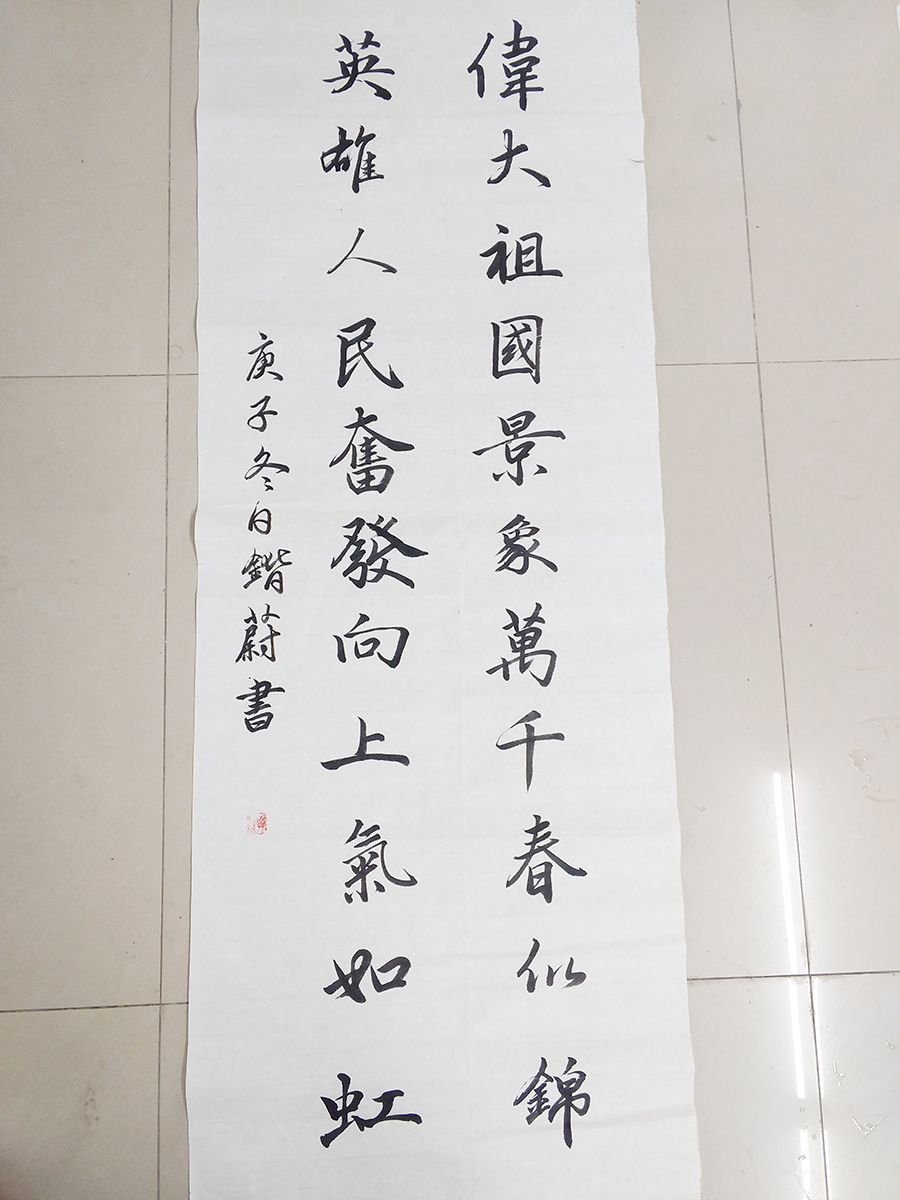 偉大祖國景象萬千春似錦
英雄人民奮發向上氣如虹
庚子冬日鍇蔚書